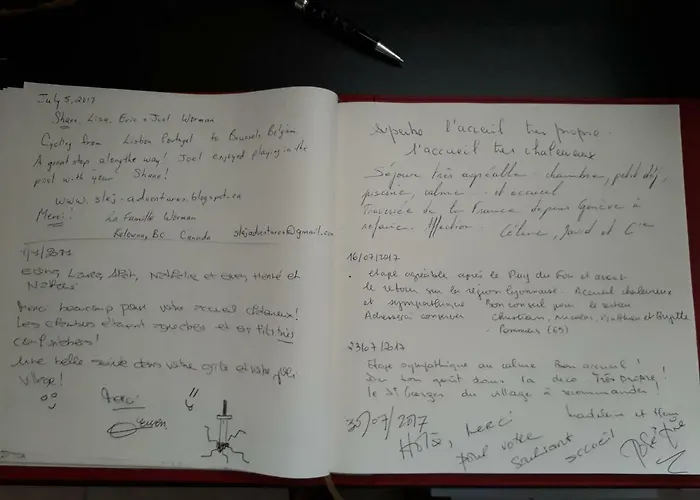 July 5, 2017
Shane, Lisa, Erin + Joel Worman
Cycling from Lisbon Portugal to Brussels, Belgium.
A great stop along the way! Joel enjoyed playing in the
pool with "year" Shane!
www.slej-adventures.blogspot.ca
Merci! La Famille Worman
Kelowna, BC Canada slejadventures@gmail.com
Merci beaucoup pour votre accueil chaleureux!
Les chambres étaient et
Une belle soirée dans votre gîte et votre
village!
Merci
Ewen
Superbe l'accueil très propre.
l'accueil très chaleureux
Séjour très agréable: chambre, petit déj,
piscine, calme et accueil
Traversée de la France depuis Genève à
Céline, David et Cie
16/07/2017
. Etape agréable après le Puy du Fou et avant
le retour sur la région lyonnaise. Accueil chaleureux
et sympathique Bon conseil pour le
Adresse à conserver Christian, Nicolas, et Brigitte
Pommiers (69)
23/07/2017
Etape sympathique au calme Bon accueil!
Du bon goût dans la déco Très propre!
le St Georges du village à recommander!
30/07/2017
Hola, Merci
pour votre accueil